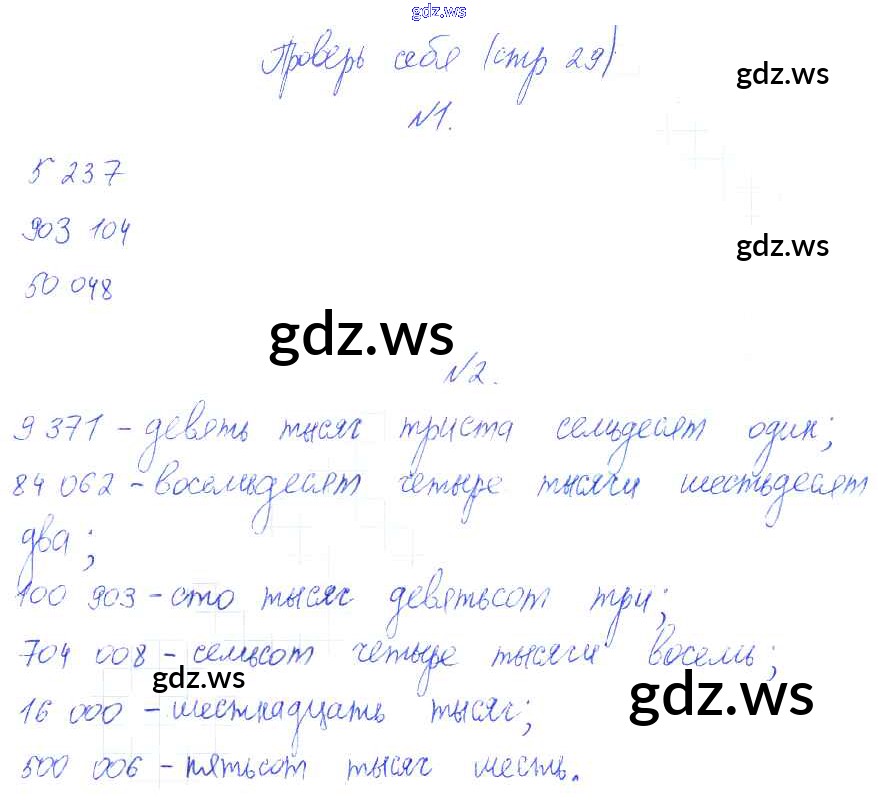 gdz.ws
Проверь себя (стр 29)
gdz.ws
№1.
5 237
903 104
gdz.ws
50 048
gdz.ws
№2.
9 371 - девять тысяч триста семьдесят один;
84 062 - восемьдесят четыре тысячи шестьдесят
два;
100 903 - сто тысяч девятьсот три;
704 008 - семьсот четыре тысячи восемь;
gdz.ws
gdz.ws
16 000 - шестнадцать тысяч;
500 006 - пятьсот тысяч шесть.